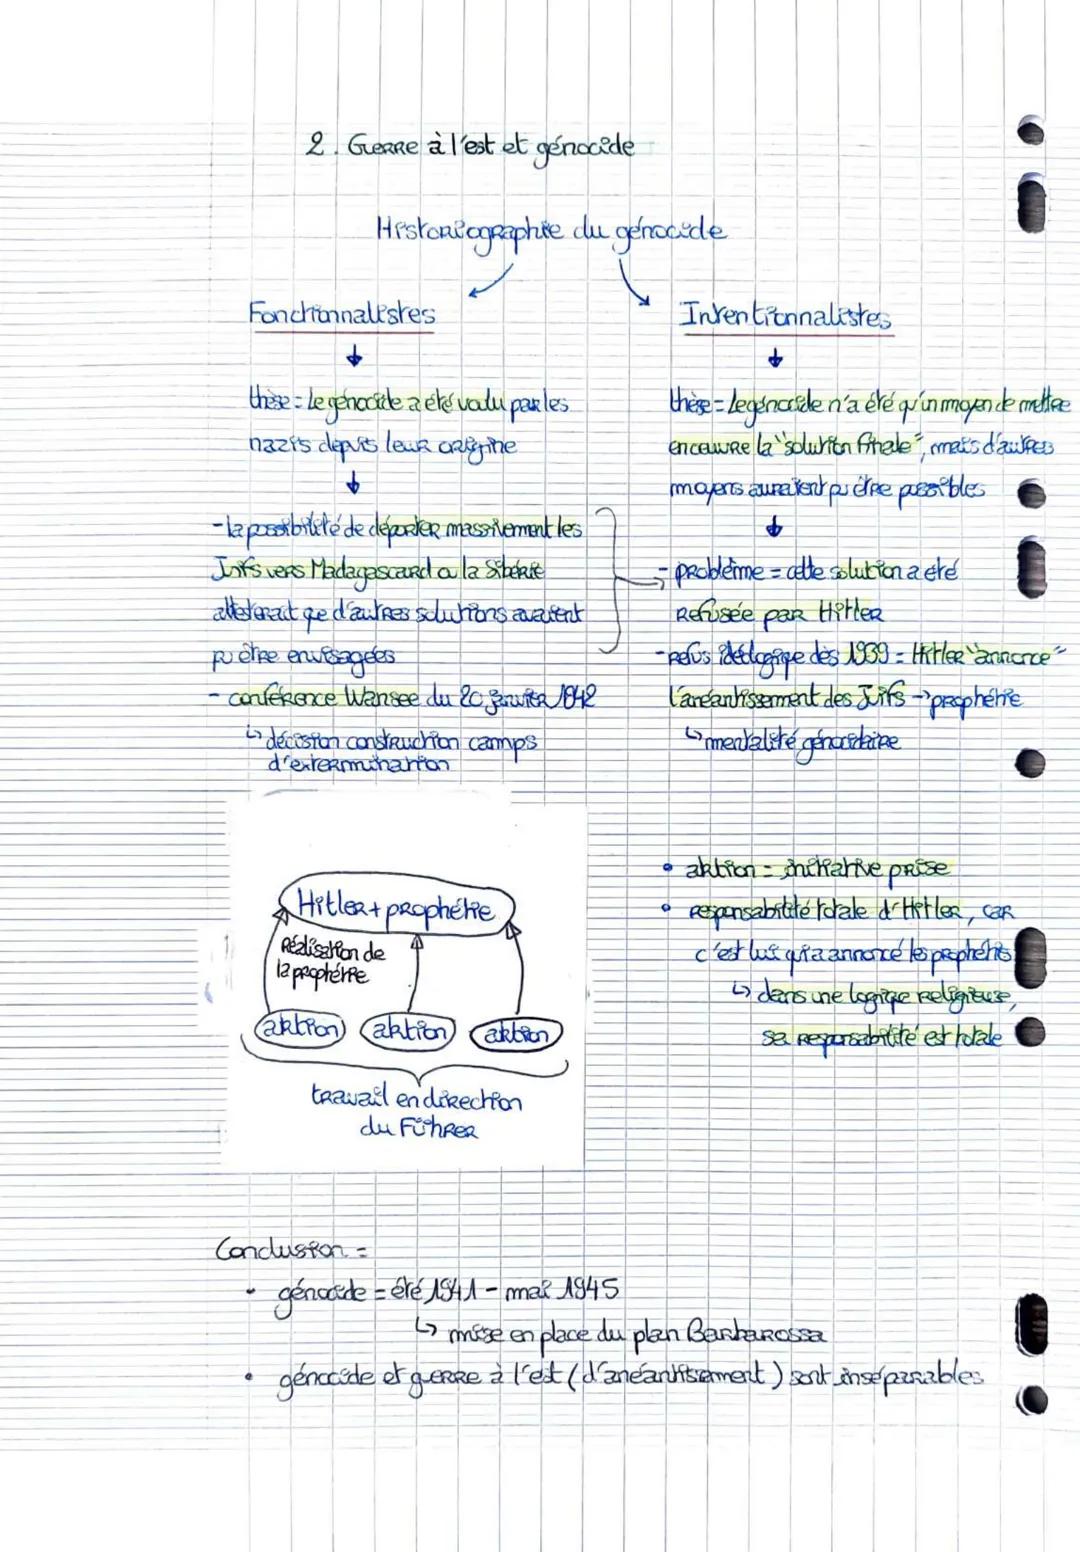 2. Guerre à l'est et génocide
Historiographie du génocide
Fonctionnalistes
thèse = le génocide a été voulu par les
nazis depuis leur origine
- la possibilité de déporter massivement les
Juifs vers Madagascar ou la Sibérie
attesterait que d'autres solutions avaient
pu être envisagées
- conférence Wansee du 20 janvier 1942
↳ décision construction camps
d'extermination
Intentionnalistes
thèse = le génocide n'a été qu'un moyen de mettre
en oeuvre la "solution finale", mais d'autres
moyens auraient pu être possibles
- problème = cette solution a été
refusée par Hitler
- refus idéologique dès 1939 = Hitler "annonce"
l'anéantissement des Juifs → prophétie
↳ mentalité génocidaire
Hitler + prophétie
Réalisation de
la prophétie
aktion aktion aktion
travail en direction
du Führer
• aktion = initiative prise
• responsabilité totale d'Hitler, car
c'est lui qui a annoncé les prophéties
↳ dans une logique religieuse,
sa responsabilité est totale
Conclusion =
• génocide = été 1941 - mai 1945
↳ mise en place du plan Barbarossa
• génocide et guerre à l'est (d'anéantissement) sont inséparables